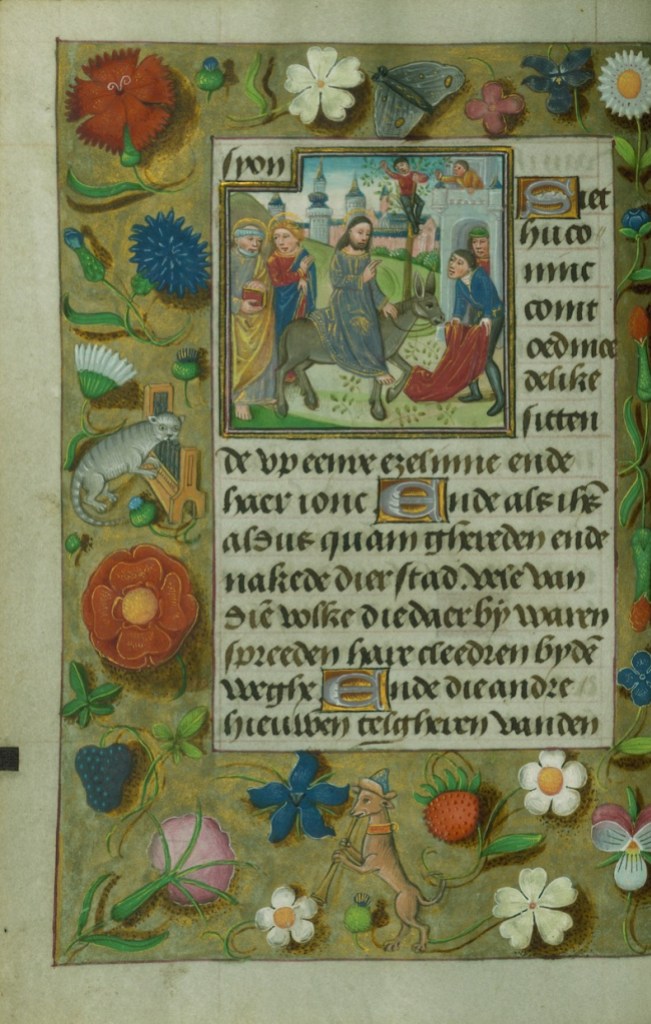 syon
Siet
hu co
ninc
comt
oedmoe
delike
sitten
de vp eenre ezelinne ende
haer ionc Ende als ihs
aldus quam ghereden ende
nakede dier stad. vele van
diē volke die daer bÿ waren
spreeden hare cleedren bÿ dē
weghe Ende die andre
hieuwen telgheren vanden